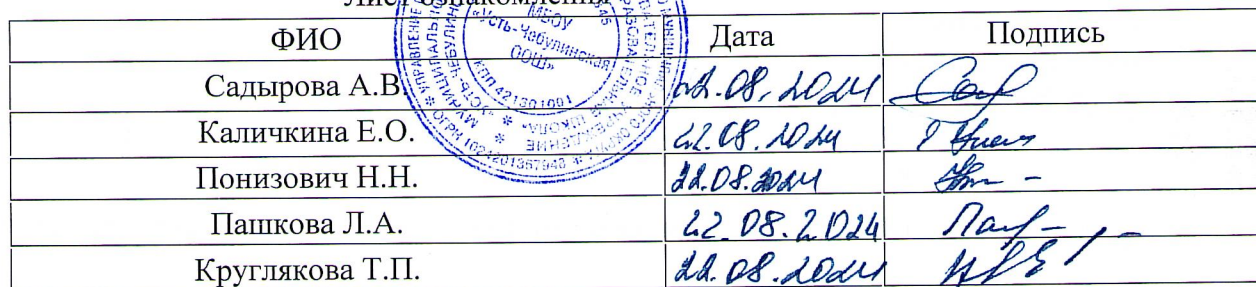 Лист ознакомления
ФИО Дата Подпись
Садырова А.В. 22.08.2024
Каличкина Е.О. 22.08.2024
Понизович Н.Н. 22.08.2024
Пашкова Л.А. 22.08.2024
Круглякова Т.П. 22.08.2024
МБОУ
«Усть-Чебулинская
ООШ»
КПП 421301001
ОГРН 1024201367948